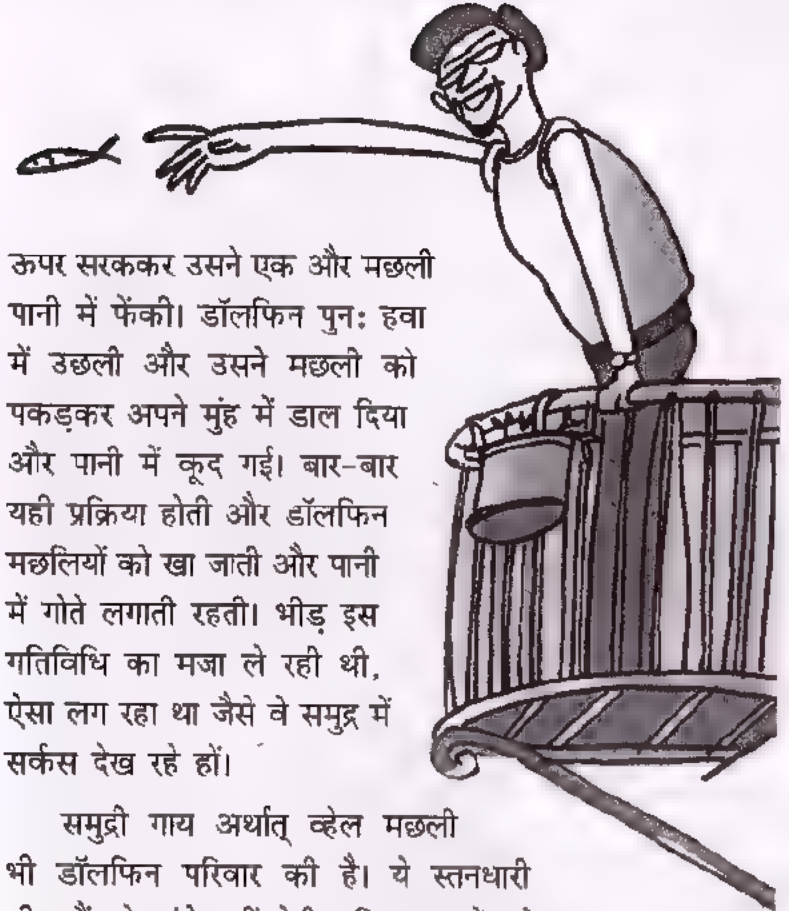 ऊपर सरककर उसने एक और मछली
पानी में फेंकी। डॉलफिन पुनः हवा
में उछली और उसने मछली को
पकड़कर अपने मुंह में डाल दिया
और पानी में कूद गई। बार-बार
यही प्रक्रिया होती और डॉलफिन
मछलियों को खा जाती और पानी
में गोते लगाती रहती। भीड़ इस
गतिविधि का मजा ले रही थी,
ऐसा लग रहा था जैसे वे समुद्र में
सर्कस देख रहे हों।
समुद्री गाय अर्थात् व्हेल मछली
भी डॉलफिन परिवार की है। ये स्तनधारी